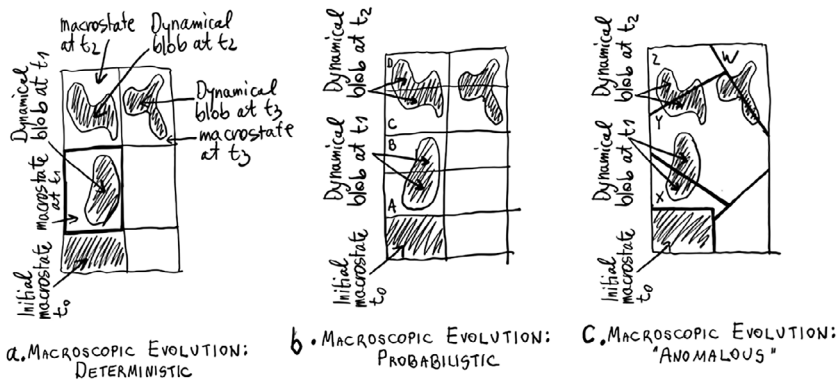 macrostate
at t2
Dynamical
blob at t2
Dynamical
blob at t1
Dynamical
blob at t3
macrostate
at t3
macrostate
at t1
Initial
macrostate
t0
a. MACROSCOPIC EVOLUTION:
DETERMINISTIC
Dynamical
blob at t2
Dynamical
blob at t1
Initial
macrostate
t0
D
C
B
A
b. MACROSCOPIC EVOLUTION:
PROBABILISTIC
Dynamical
blob at t2
Dynamical
blob at t1
Initial
macrostate
t0
Z
W
Y
X
C. MACROSCOPIC EVOLUTION:
"ANOMALOUS"